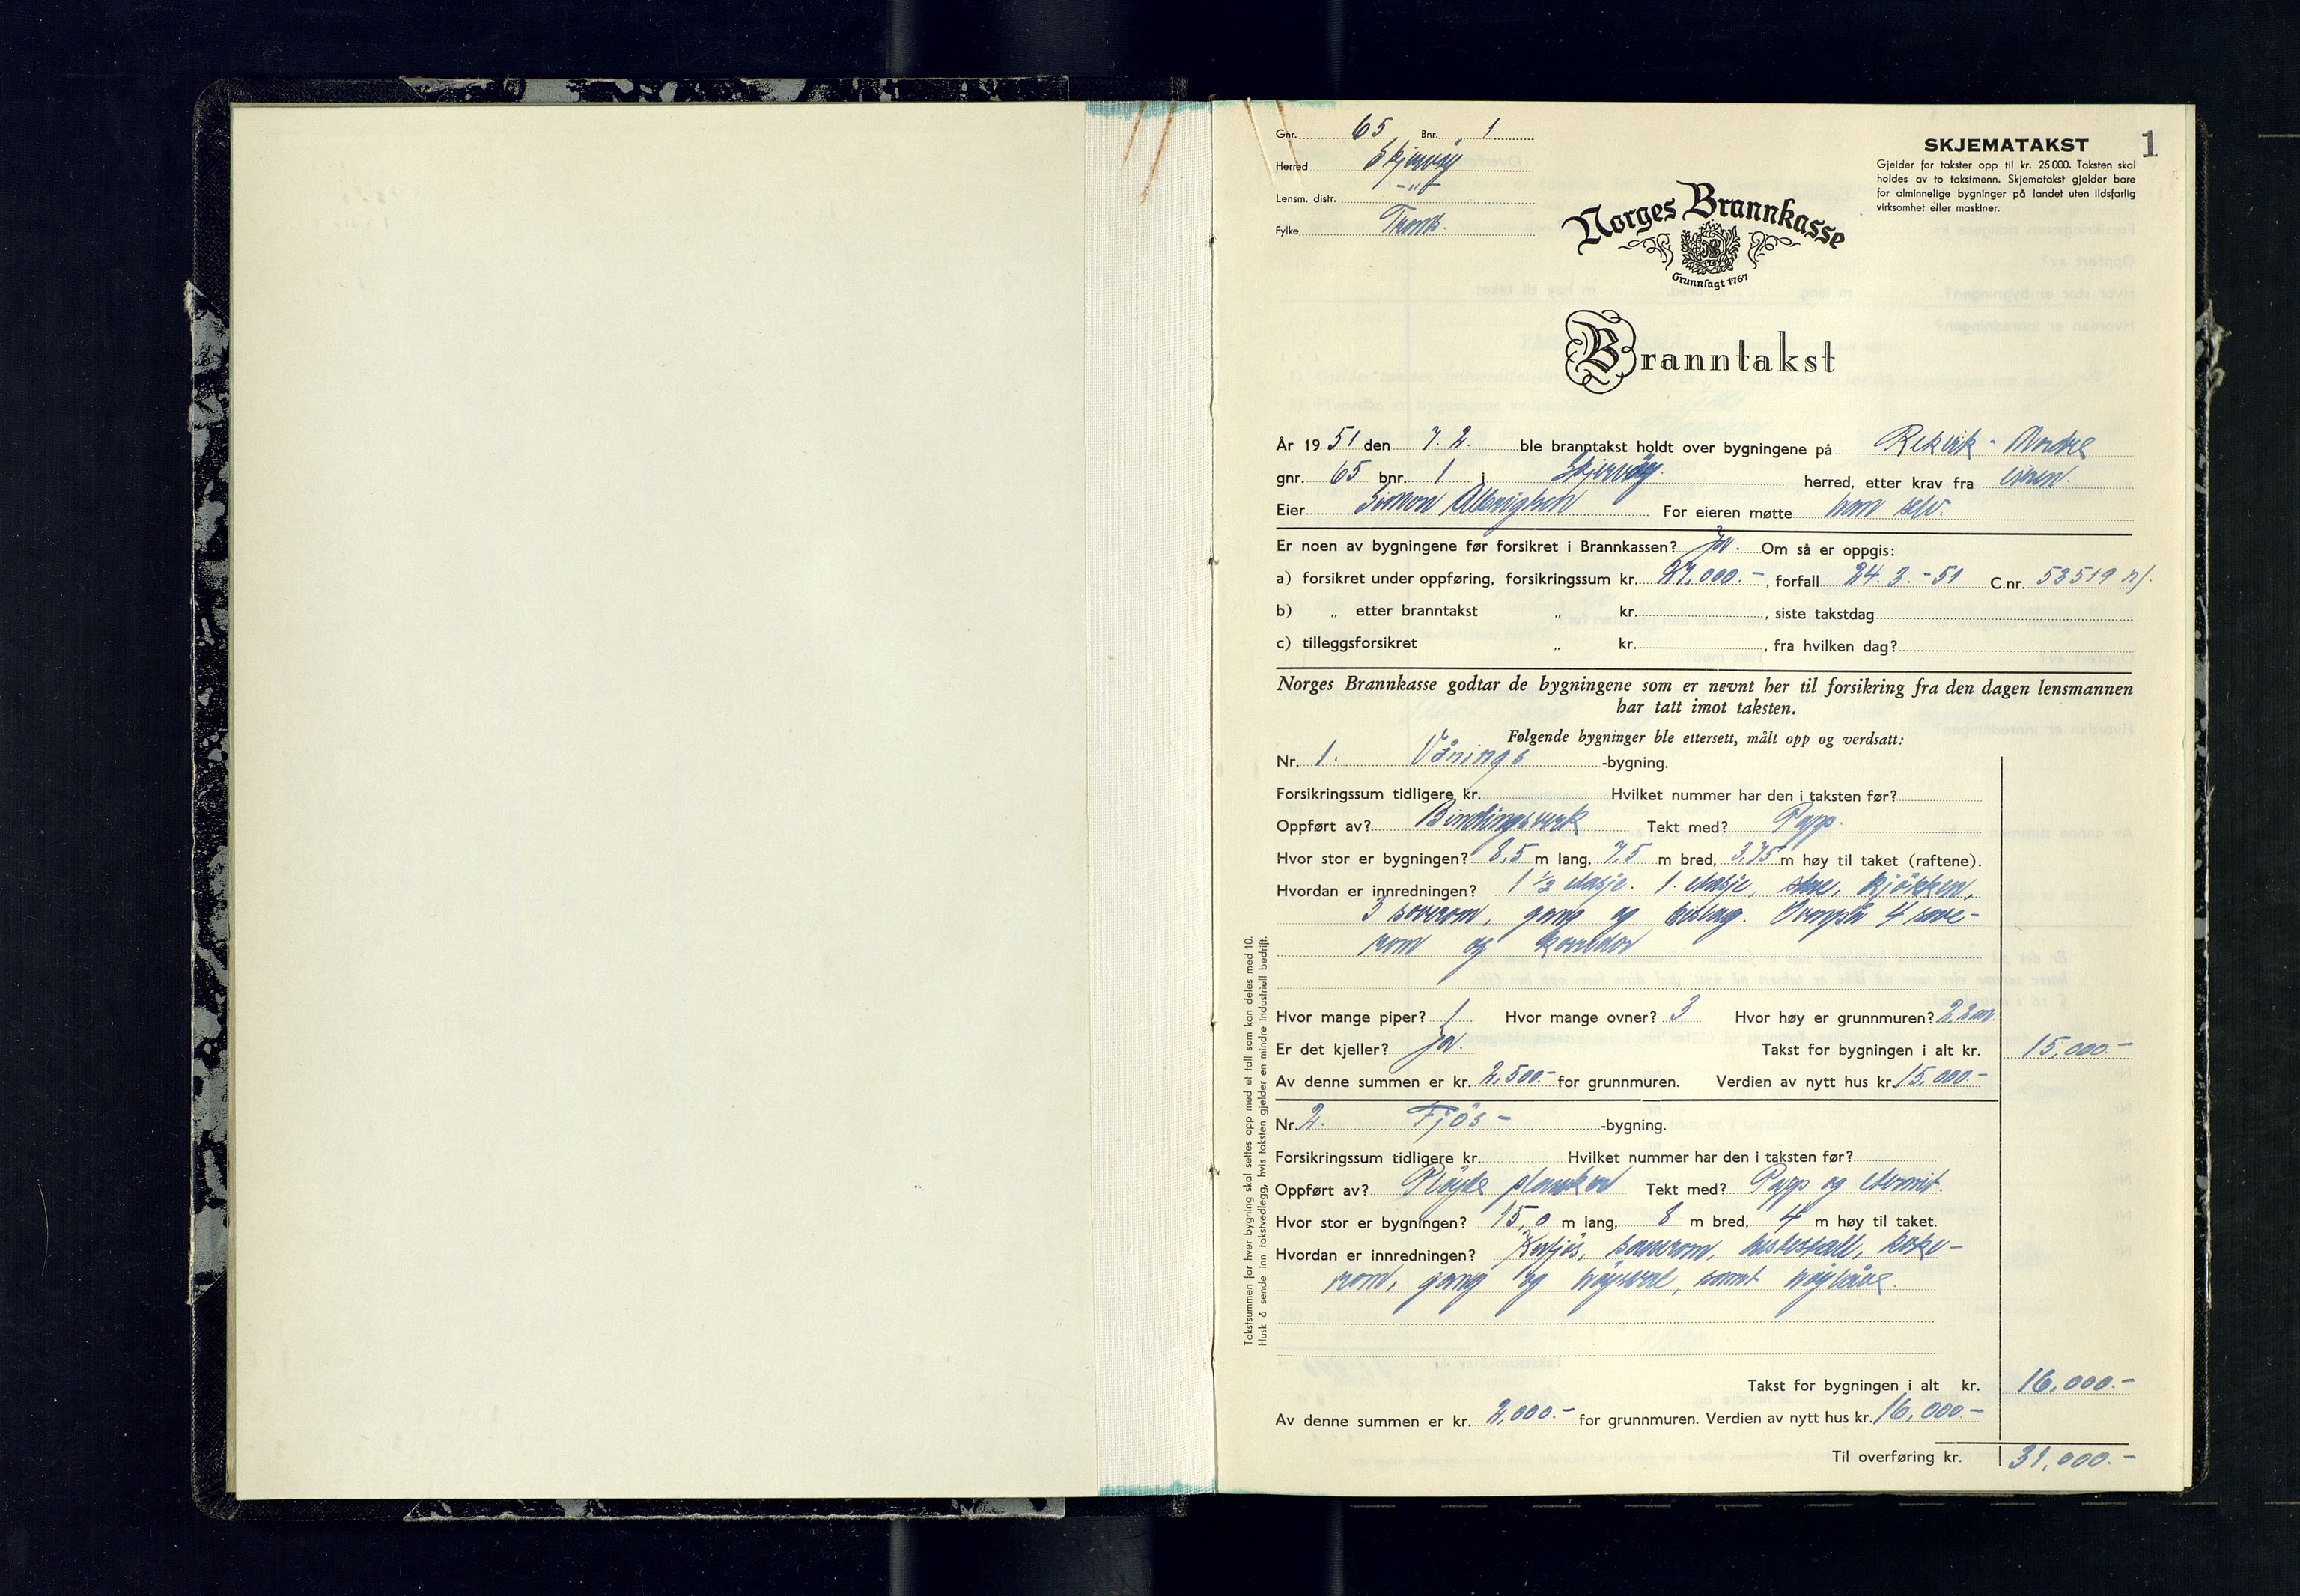 Gnr. 65 Bnr. 1
Herred Skjervøy
Lensm. distr. -"-
Fylke Troms.
SKJEMATAKST 1
Gjelder for takster opp til kr. 25 000. Taksten skal
holdes av to takstmenn. Skjematakst gjelder bare
for alminnelige bygninger på landet uten ildsfarlig
virksomhet eller maskiner.
Norges Brannkasse
Grunnlagt 1767
Branntakst
År 1951 den 7.2. ble branntakst holdt over bygningene på Rekvik - Nordre
gnr. 65 bnr. 1 i Skjervøy. herred, etter krav fra eieren.
Eier Simon Albrigtsen For eieren møtte ham selv.
Er noen av bygningene før forsikret i Brannkassen? Ja. Om så er oppgis:
a) forsikret under oppføring, forsikringssum kr. 27.000.-, forfall 24.3.-51 C.nr. 53519
b) „ etter branntakst „ kr. , siste takstdag
c) tilleggsforsikret „ kr. , fra hvilken dag?
Norges Brannkasse godtar de bygningene som er nevnt her til forsikring fra den dagen lensmannen
har tatt imot taksten.
Følgende bygninger ble ettersett, målt opp og verdsatt:
Nr. 1. Vånings -bygning.
Forsikringssum tidligere kr. Hvilket nummer har den i taksten før?
Oppført av? Bindingsverk Tekt med? Papp.
Hvor stor er bygningen? 8,5 m lang, 7,5 m bred, 3,75 m høy til taket (raftene).
Hvordan er innredningen? 1 1/2 etasje. 1. etasje, stue, kjøkken,
3 soverom, gang og bislag. Ovenpå 4 sove-
rom og korridor
Hvor mange piper? 1 Hvor mange ovner? 3 Hvor høy er grunnmuren? 2,2 m.
Er det kjeller? Ja. Takst for bygningen i alt kr. 15.000.-
Av denne summen er kr. 2.500.- for grunnmuren. Verdien av nytt hus kr. 15.000.-
Nr. 2. Fjös- -bygning.
Forsikringssum tidligere kr. Hvilket nummer har den i taksten før?
Oppført av? Pløyde planker Tekt med? Papp og eternit.
Hvor stor er bygningen? 15,0 m lang, 8 m bred, 4 m høy til taket.
Hvordan er innredningen? Kufjös, sauerom, hestestall, koke-
rom, gang og høysval, samt høylåve.
Takst for bygningen i alt kr. 16.000.-
Av denne summen er kr. 2.000.- for grunnmuren. Verdien av nytt hus kr. 16.000.-
Til overføring kr. 31.000.-
Takstsummen for hver bygning skal settes opp med et tall som kan deles med 10.
Husk å sende inn takstvedlegg, hvis taksten gjelder en mindre industriell bedrift.